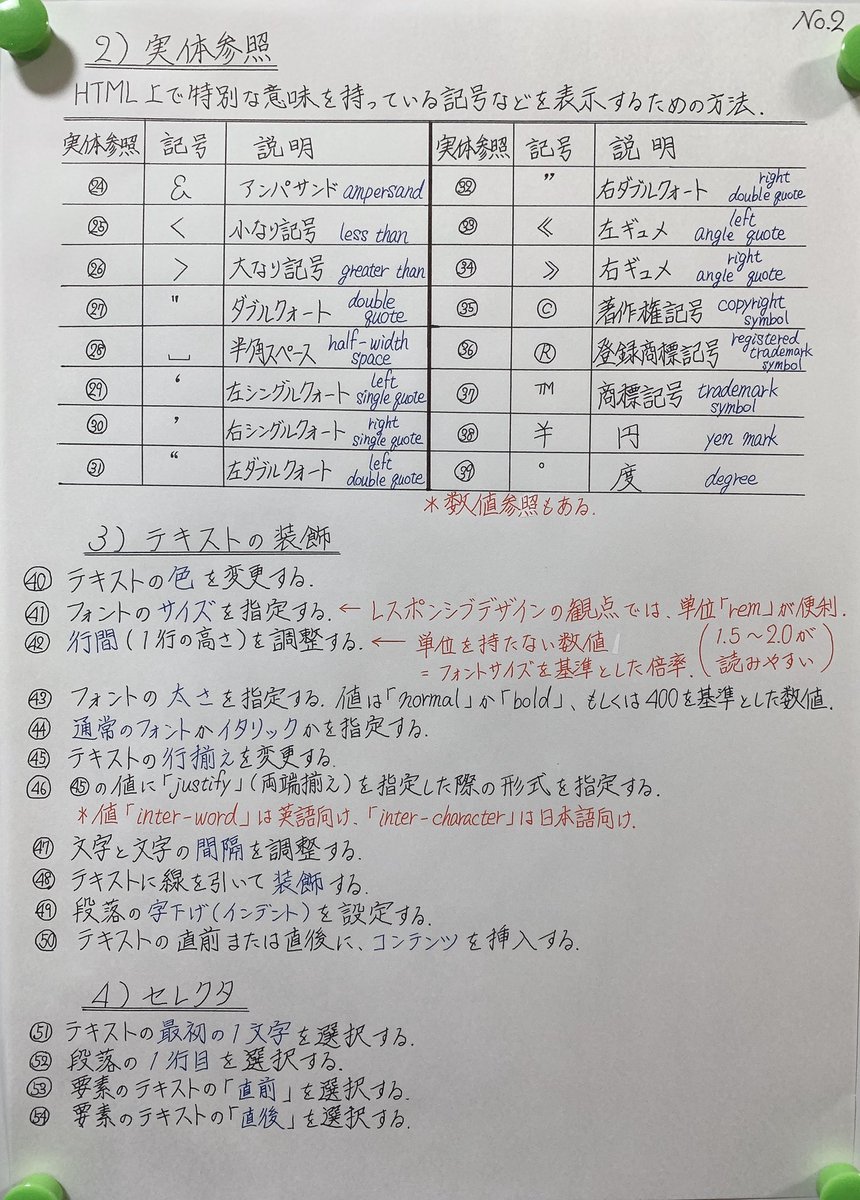 No.2
2) 実体参照
HTML上で特別な意味を持っている記号などを表示するための方法.
実体参照 記号 説明 実体参照 記号 説明
㉔ & アンパサンド ampersand ㉜ ” 右ダブルクォート right double quote
㉕ < 小なり記号 less than ㉝ 《 左ギュメ left angle quote
㉖ > 大なり記号 greater than ㉞ 》 右ギュメ right angle quote
㉗ " ダブルクォート double quote ㉟ © 著作権記号 copyright symbol
㉘ ␣ 半角スペース half-width space ㊱ ® 登録商標記号 registered trademark symbol
㉙ ‘ 左シングルクォート left single quote ㊲ TM 商標記号 trademark symbol
㉚ ’ 右シングルクォート right single quote ㊳ ¥ 円 yen mark
㉛ “ 左ダブルクォート left double quote ㊴ ° 度 degree
*数値参照もある.
3) テキストの装飾
㊵ テキストの色を変更する.
㊶ フォントのサイズを指定する. ← レスポンシブデザインの観点では、単位「rem」が便利.
㊷ 行間(1行の高さ)を調整する. ← 単位を持たない数値 (1.5～2.0が
=フォントサイズを基準とした倍率. 読みやすい)
㊸ フォントの太さを指定する. 値は「normal」か「bold」、もしくは400を基準とした数値.
㊹ 通常のフォントかイタリックかを指定する.
㊺ テキストの行揃えを変更する.
㊻ ㊺の値に「justify」(両端揃え)を指定した際の形式を指定する.
*値「inter-word」は英語向け、「inter-character」は日本語向け.
㊼ 文字と文字の間隔を調整する.
㊽ テキストに線を引いて装飾する.
㊾ 段落の字下げ(インデント)を設定する.
㊿ テキストの直前または直後に、コンテンツを挿入する.
4) セレクタ
51 テキストの最初の1文字を選択する.
52 段落の1行目を選択する.
53 要素のテキストの「直前」を選択する.
54 要素のテキストの「直後」を選択する.